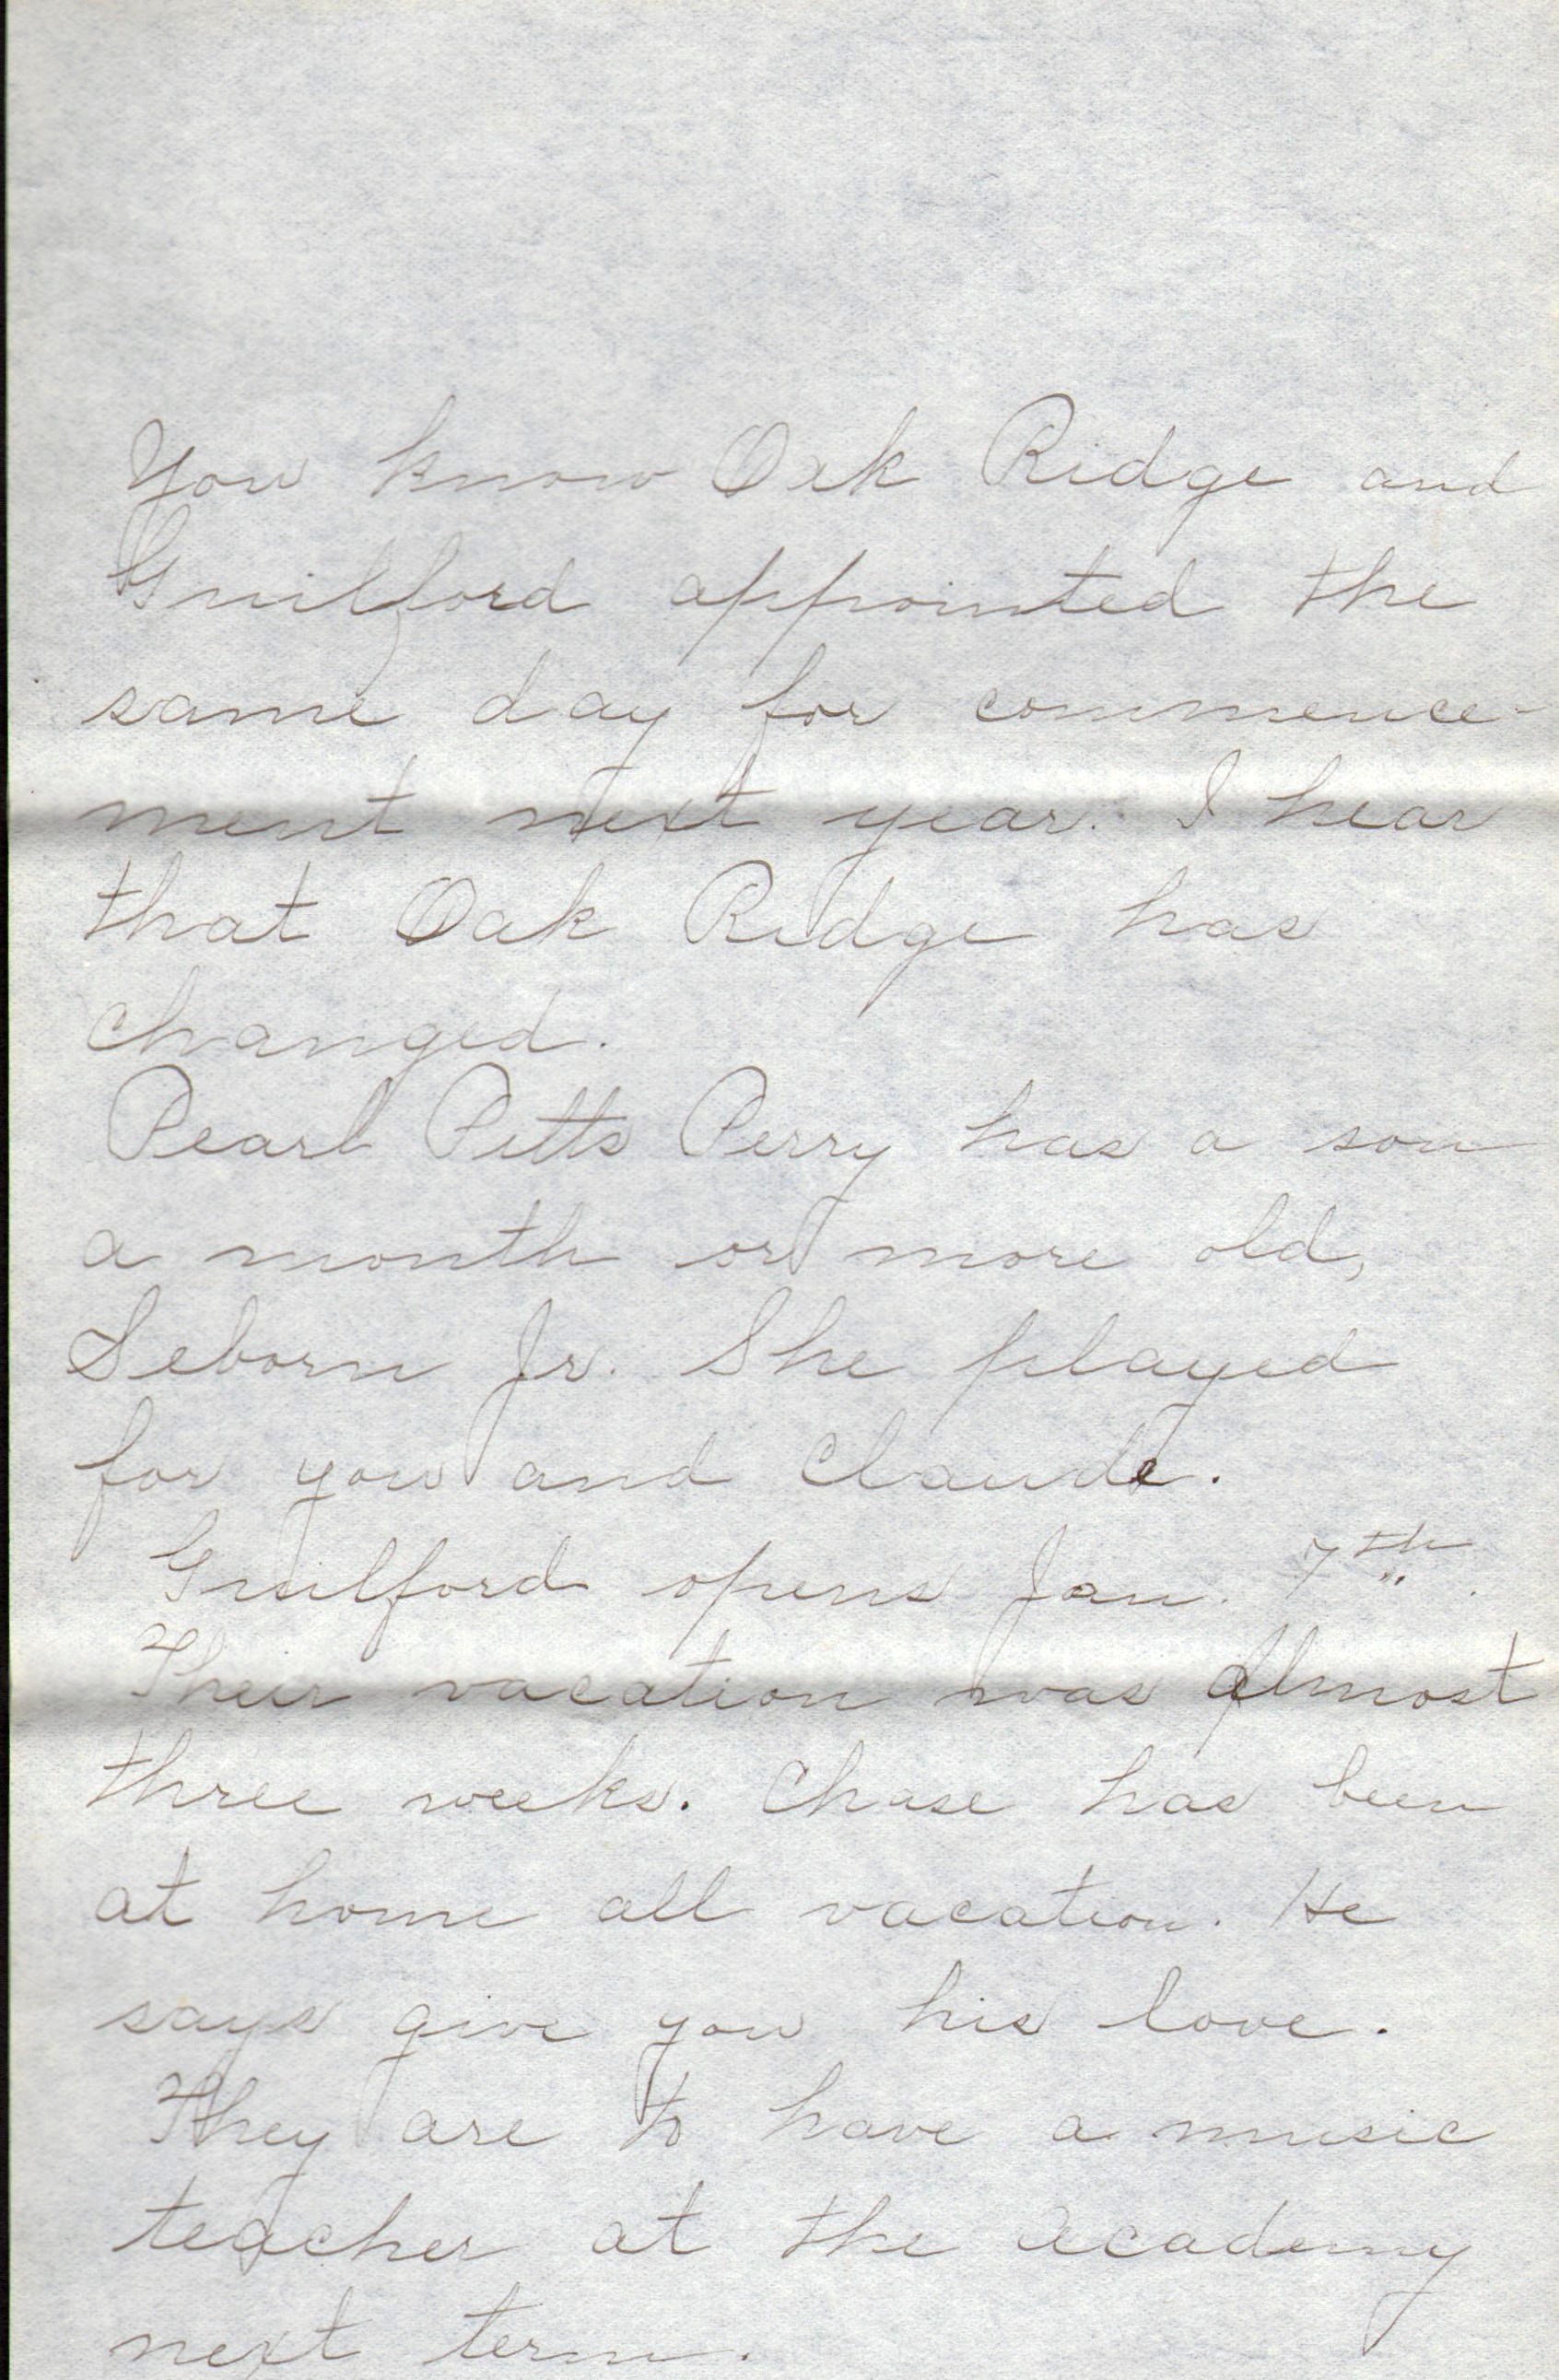 You know Oak Ridge and
Guilford appointed the
same day for commence-
ment next year. I hear
that Oak Ridge has
changed.
Pearl Pitts Perry has a son
a month or more old,
Seborn Jr. She played
for you and Claude.
Guilford opens Jan. 7th.
Their vacation was almost
three weeks. Chase has been
at home all vacation. He
says give you his love.
They are to have a music
teacher at the academy
next term.